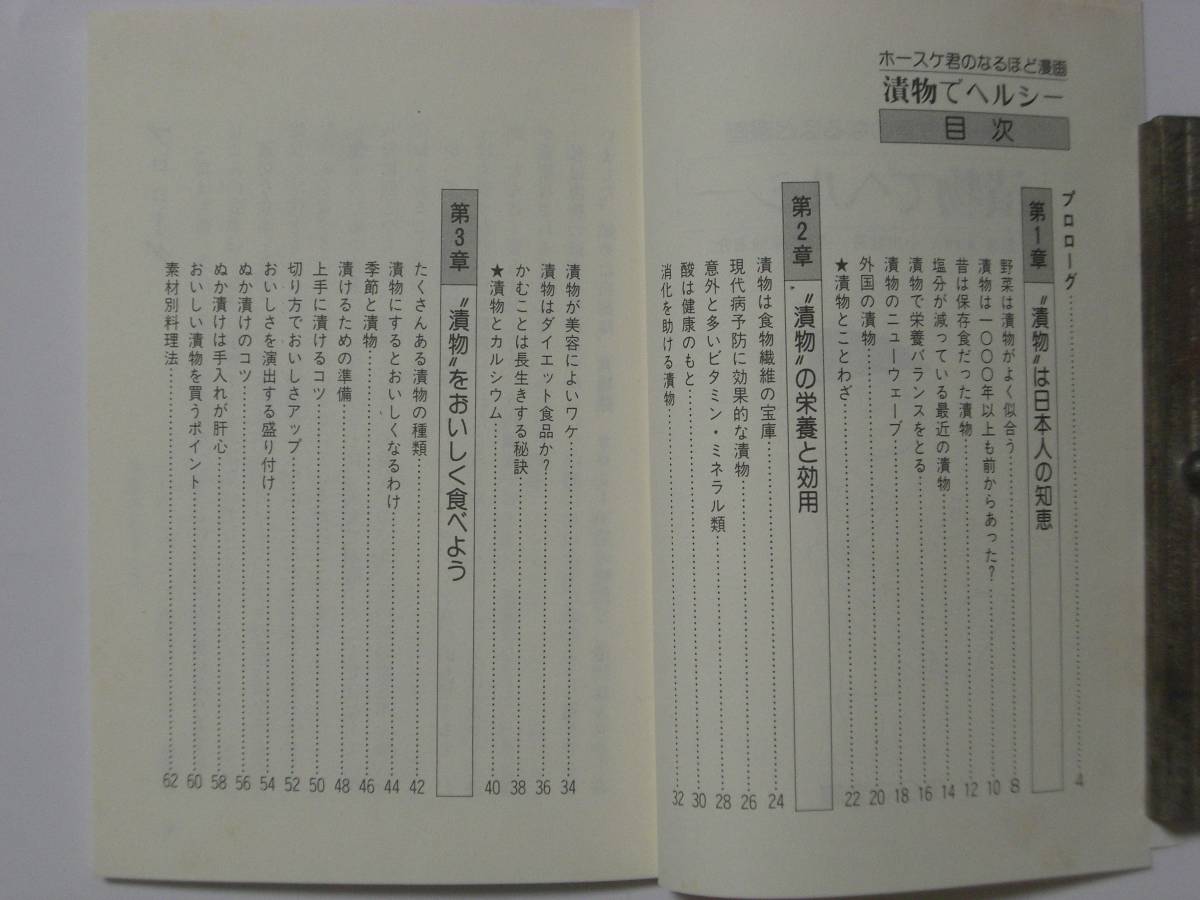 ホースケ君のなるほど漫画
漬物でヘルシー
目次
プロローグ……4
第1章 “漬物”は日本人の知恵
野菜は漬物がよく似合う……8
漬物は一〇〇〇年以上も前からあった?……10
昔は保存食だった漬物……12
塩分が減っている最近の漬物……14
漬物で栄養バランスをとる……16
漬物のニューウェーブ……18
外国の漬物……20
★漬物とことわざ……22
第2章 “漬物”の栄養と効用
漬物は食物繊維の宝庫……24
現代病予防に効果的な漬物……26
意外と多いビタミン・ミネラル類……28
酸は健康のもと……30
消化を助ける漬物……32
漬物が美容によいワケ……34
漬物はダイエット食品か?……36
かむことは長生きする秘訣……38
★漬物とカルシウム……40
第3章 “漬物”をおいしく食べよう
たくさんある漬物の種類……42
漬物にするとおいしくなるわけ……44
季節と漬物……46
漬けるための準備……48
上手に漬けるコツ……50
切り方でおいしさアップ……52
おいしさを演出する盛り付け……54
ぬか漬けのコツ……56
ぬか漬けは手入れが肝心……58
おいしい漬物を買うポイント……60
素材別料理法……62